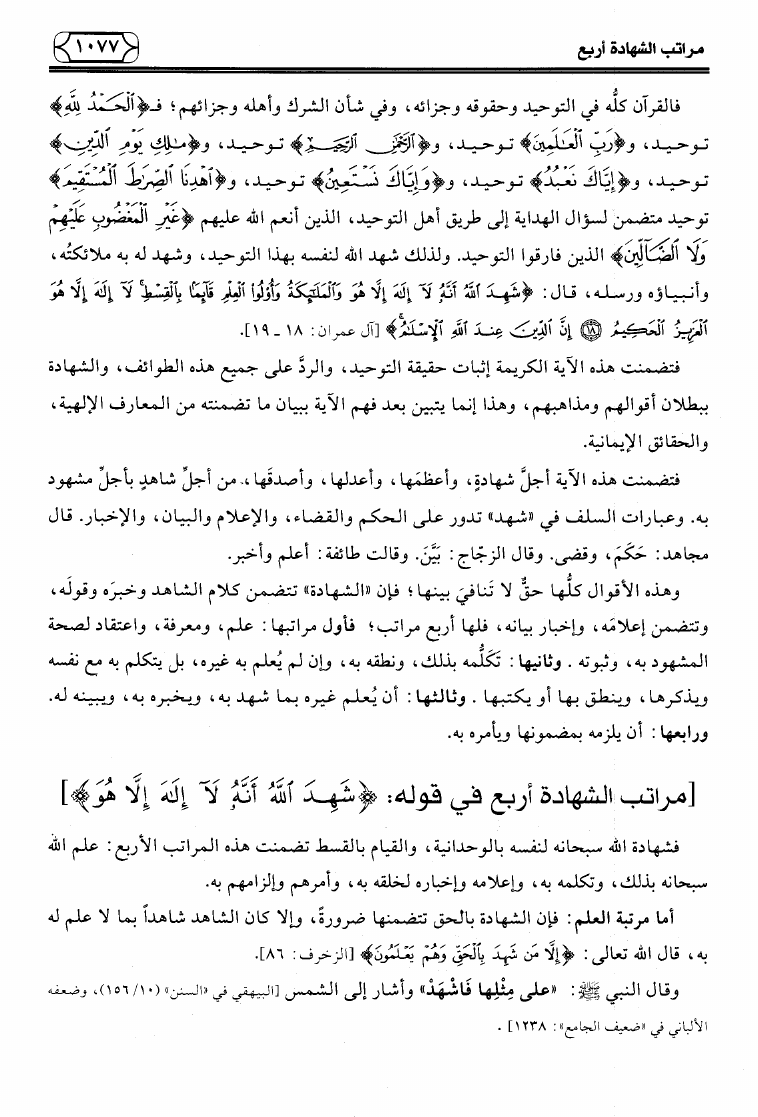 مراتب الشهادة أربع
١٠٧٧
فالقرآن كلُّه في التوحيد وحقوقه وجزائه، وفي شأن الشرك وأهله وجزائهم؛ فـ﴿ٱلْحَمْدُ لِلَّهِ﴾
توحيد، و﴿رَبِّ ٱلْعَٰلَمِينَ﴾ توحيد، و﴿ٱلرَّحْمَٰنِ ٱلرَّحِيمِ﴾ توحيد، و﴿مَٰلِكِ يَوْمِ ٱلدِّينِ﴾
توحيد، و﴿إِيَّاكَ نَعْبُدُ﴾ توحيد، و﴿وَإِيَّاكَ نَسْتَعِينُ﴾ توحيد، و﴿ٱهْدِنَا ٱلصِّرَٰطَ ٱلْمُسْتَقِيمَ﴾
توحيد متضمن لسؤال الهداية إلى طريق أهل التوحيد، الذين أنعم الله عليهم ﴿غَيْرِ ٱلْمَغْضُوبِ عَلَيْهِمْ
وَلَا ٱلضَّآلِّينَ﴾ الذين فارقوا التوحيد. ولذلك شهد الله لنفسه بهذا التوحيد، وشهد له به ملائكتُه،
وأنبياؤه ورسله، قال: ﴿شَهِدَ ٱللَّهُ أَنَّهُۥ لَآ إِلَٰهَ إِلَّا هُوَ وَٱلْمَلَٰٓئِكَةُ وَأُو۟لُوا۟ ٱلْعِلْمِ قَآئِمًۢا بِٱلْقِسْطِ ۚ لَآ إِلَٰهَ إِلَّا هُوَ
ٱلْعَزِيزُ ٱلْحَكِيمُ ۝١٨ إِنَّ ٱلدِّينَ عِندَ ٱللَّهِ ٱلْإِسْلَٰمُ ۗ﴾ [آل عمران: ١٨ ـ ١٩].
فتضمنت هذه الآية الكريمة إثبات حقيقة التوحيد، والردَّ على جميع هذه الطوائف، والشهادة
ببطلان أقوالهم ومذاهبهم، وهذا إنما يتبين بعد فهم الآية ببيان ما تضمنته من المعارف الإلهية،
والحقائق الإيمانية.
فتضمنت هذه الآية أجلَّ شهادةٍ، وأعظمَها، وأعدلَها، وأصدقَها، من أجلِّ شاهدٍ بأجلِّ مشهود
به. وعبارات السلف في «شهد» تدور على الحكم والقضاء، والإعلام والبيان، والإخبار. قال
مجاهد: حَكَمَ، وقضى. وقال الزجّاج: بَيَّنَ. وقالت طائفة: أعلم وأخبر.
وهذه الأقوال كلُّها حقٌّ لا تَنافيَ بينها؛ فإن «الشهادة» تتضمن كلام الشاهد وخبرَه وقولَه،
وتتضمن إعلامَه، وإخبار بيانه، فلها أربع مراتب؛ فأول مراتبها: علم، ومعرفة، واعتقاد لصحة
المشهود به، وثبوته. وثانيها: تَكَلُّمه بذلك، ونطقه به، وإن لم يُعلم به غيره، بل يتكلم به مع نفسه
ويذكرها، وينطق بها أو يكتبها. وثالثها: أن يُعلم غيره بما شهد به، ويخبره به، ويبينه له.
ورابعها: أن يلزمه بمضمونها ويأمره به.
[مراتب الشهادة أربع في قوله: ﴿شَهِدَ ٱللَّهُ أَنَّهُۥ لَآ إِلَٰهَ إِلَّا هُوَ﴾]
فشهادة الله سبحانه لنفسه بالوحدانية، والقيام بالقسط تضمنت هذه المراتب الأربع: علم الله
سبحانه بذلك، وتكلمه به، وإعلامه وإخباره لخلقه به، وأمرهم وإلزامهم به.
أما مرتبة العلم: فإن الشهادة بالحق تتضمنها ضرورةً، وإلا كان الشاهد شاهداً بما لا علم له
به، قال الله تعالى: ﴿إِلَّا مَن شَهِدَ بِٱلْحَقِّ وَهُمْ يَعْلَمُونَ﴾ [الزخرف: ٨٦].
وقال النبي ﷺ: «على مِثْلِها فَاشْهَدْ» وأشار إلى الشمس [البيهقي في «السنن» (١٠/ ١٥٦)، وضعفه
الألباني في «ضعيف الجامع»: ١٢٣٨].